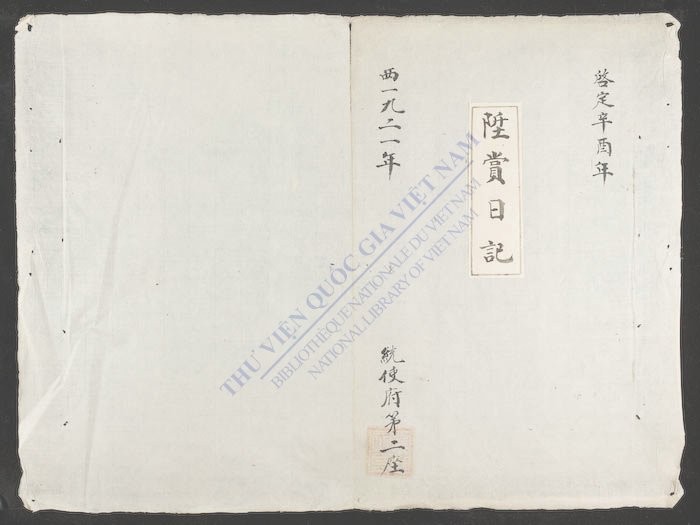 啓定辛酉年
陞賞日記
西一九二一年
統使府第二座
THƯ VIỆN QUỐC GIA VIỆT NAM
BIBLIOTHÈQUE NATIONALE DU VIETNAM
NATIONAL LIBRARY OF VIETNAM